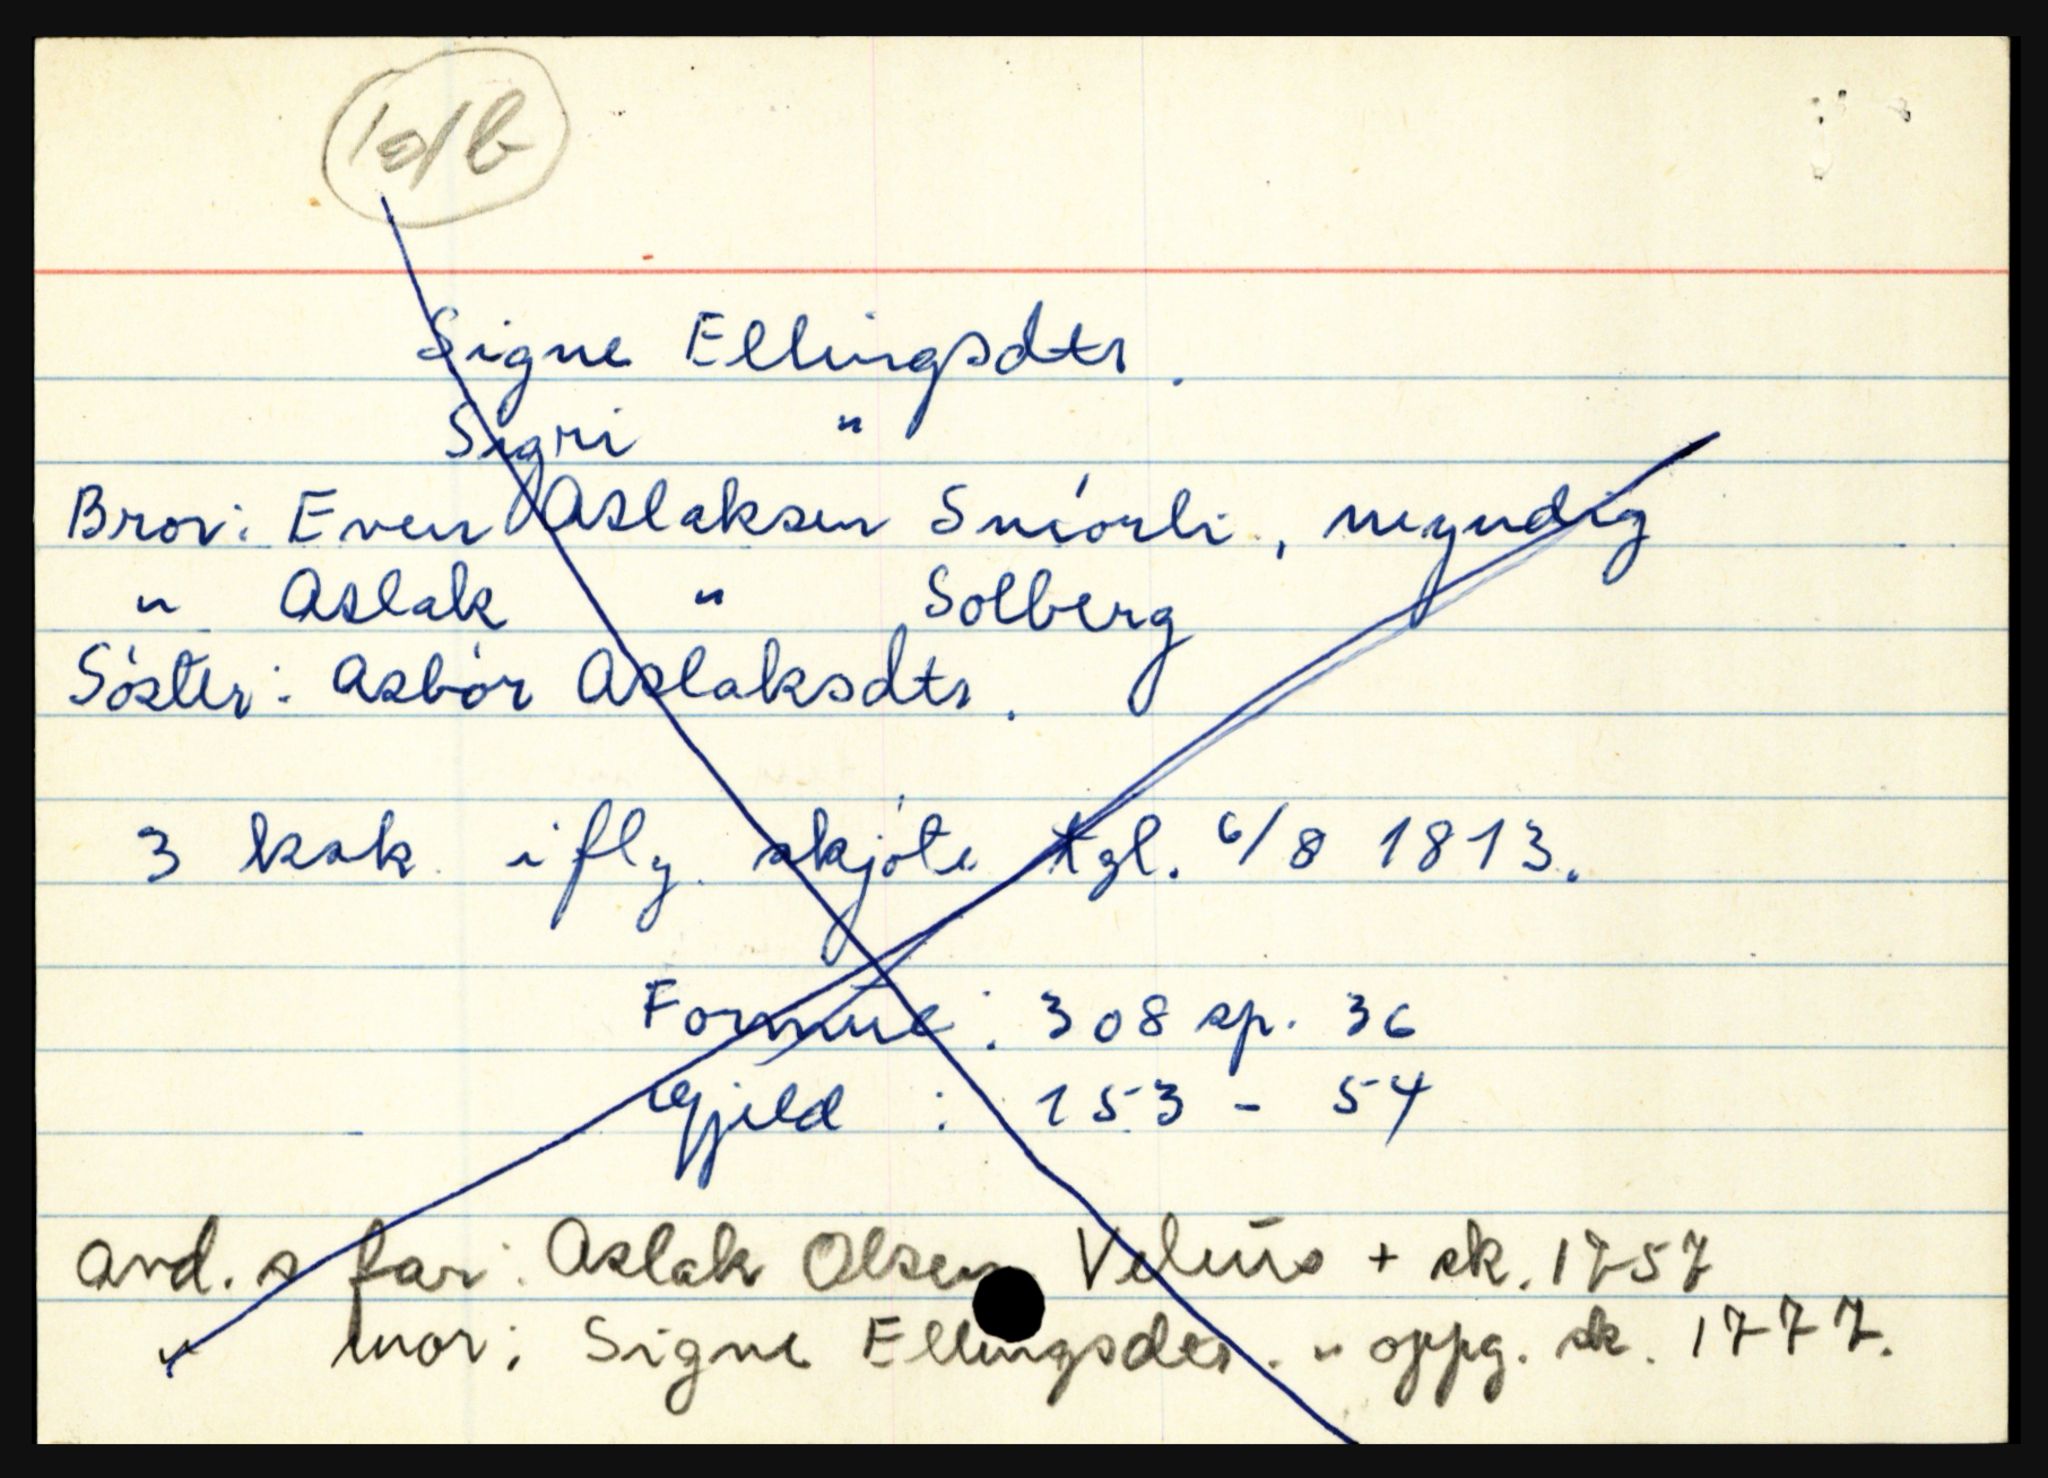 Signe Ellingsdtr.
Sigri "
Bror: Even Aslaksen Sniorli, myndig
" Aslak " Solberg
Söster: Asbör Aslaksdtr.
3 ksk. ifly. skjöte tgl. 6/8 1813.
Formue: 308 sp. 36
Gjeld : 153 - 54
avd. s far: Aslak Olsen + sk. 1757
" mor: Signe Ellingsdtr. " oppg. sk. 1777.